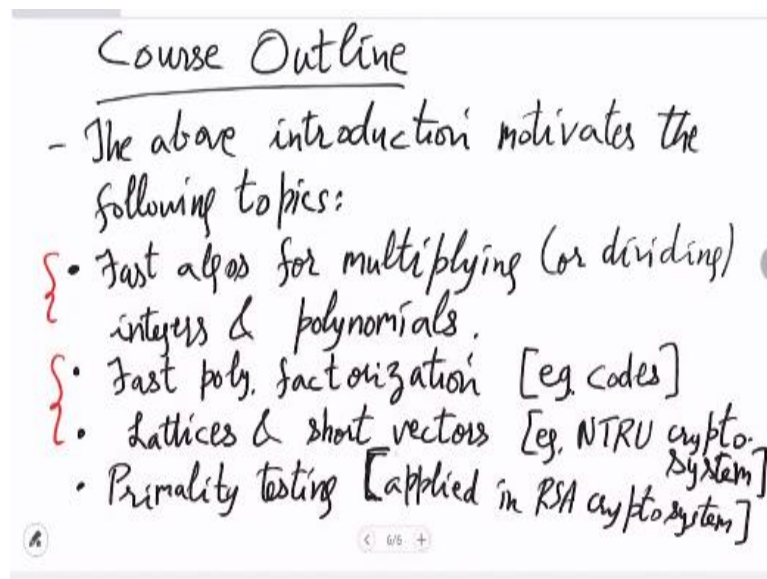 Course Outline
- The above introduction motivates the
following topics:
• Fast algos for multiplying (or dividing)
integers & polynomials.
• Fast poly. factorization [eg. codes]
• Lattices & short vectors [eg. NTRU crypto-
system]
• Primality testing [applied in RSA cryptosystem]
< 6/6 +